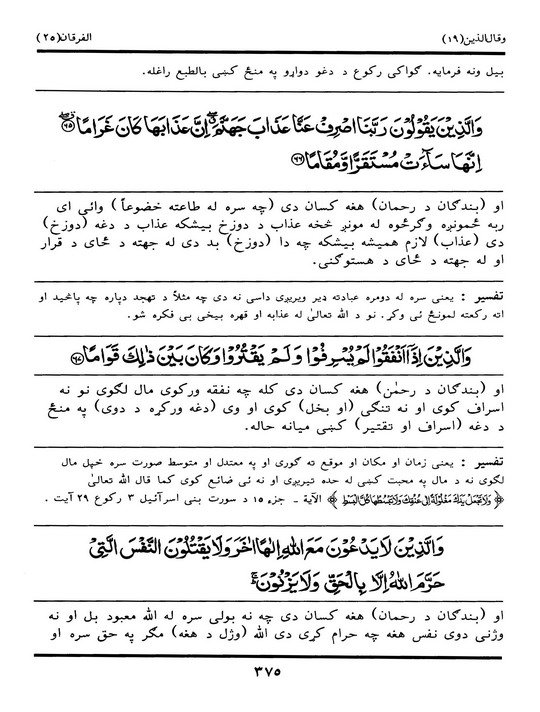 وقال‌الذین (١٩)
الفرقان (٢٥)
بيل ونه فرمايه. گواکي رکوع د دغو دواړو په منځ کښې بالطبع راغله.
وَالَّذِيْنَ يَقُوْلُوْنَ رَبَّنَا اصْرِفْ عَنَّا عَذَابَ جَهَنَّمَ ۖ اِنَّ عَذَابَهَا كَانَ غَرَامًا ﴿٦٥﴾
اِنَّهَا سَآءَتْ مُسْتَقَرًّا وَّمُقَامًا ﴿٦٦﴾
او (بندگان د رحمان) هغه کسان دی (چه سره له طاعته خضوعاً) وائی ای
ربه ځمونږه وگرځوه له مونږ څخه عذاب د دوزخ بیشکه عذاب د دغه (دوزخ)
دی (عذاب) لازم همیشه بیشکه چه دا (دوزخ) بد دی له جهته د ځای د قرار
او له جهته د ځای د هستوگنی.
تفسیر : یعنی سره له دومره عبادته ډیر ویریږی داسی نه دی چه مثلاً د تهجد دپاره چه پاڅید او
اته رکعته لمونځ ئی وکړ. نو د الله تعالیٰ له عذابه او قهره بیخی بی فکره شو.
وَالَّذِيْنَ اِذَآ اَنْفَقُوْا لَمْ يُسْرِفُوْا وَلَمْ يَقْتُرُوْا وَكَانَ بَيْنَ ذٰلِكَ قَوَامًا ﴿٦٧﴾
او (بندگان د رحمٰن) هغه کسان دی کله چه نفقه ورکوی مال لگوی نو نه
اسراف کوی او نه تنگی (او بخل) کوی او وی (دغه ورکړه د دوی) په منځ
د دغه (اسراف او تقتیر) کښی میانه حاله.
تفسیر : یعنی زمان او مکان او موقع ته گوری او په معتدل او متوسط صورت سره خپل مال
لگوی نه د مال په محبت کښی له حده تیریږی او نه ئی ضائع کوی کما قال الله تعالیٰ
﴿ وَلَا تَجْعَلْ يَدَكَ مَغْلُوْلَةً اِلٰى عُنُقِكَ وَلَا تَبْسُطْهَا كُلَّ الْبَسْطِ ﴾ الآیة ـ جزء ١٥ د سورت بنی اسرآئیل ٣ رکوع ٢٩ آیت .
وَالَّذِيْنَ لَا يَدْعُوْنَ مَعَ اللّٰهِ اِلٰهًا اٰخَرَ وَلَا يَقْتُلُوْنَ النَّفْسَ الَّتِيْ
حَرَّمَ اللّٰهُ اِلَّا بِالْحَقِّ وَلَا يَزْنُوْنَ ۚ
او (بندگان د رحمان) هغه کسان دی چه نه بولی سره له الله معبود بل او نه
وژنی دوی نفس هغه چه حرام کړی دی الله (وژل د هغه) مگر په حق سره او
٣٧٥